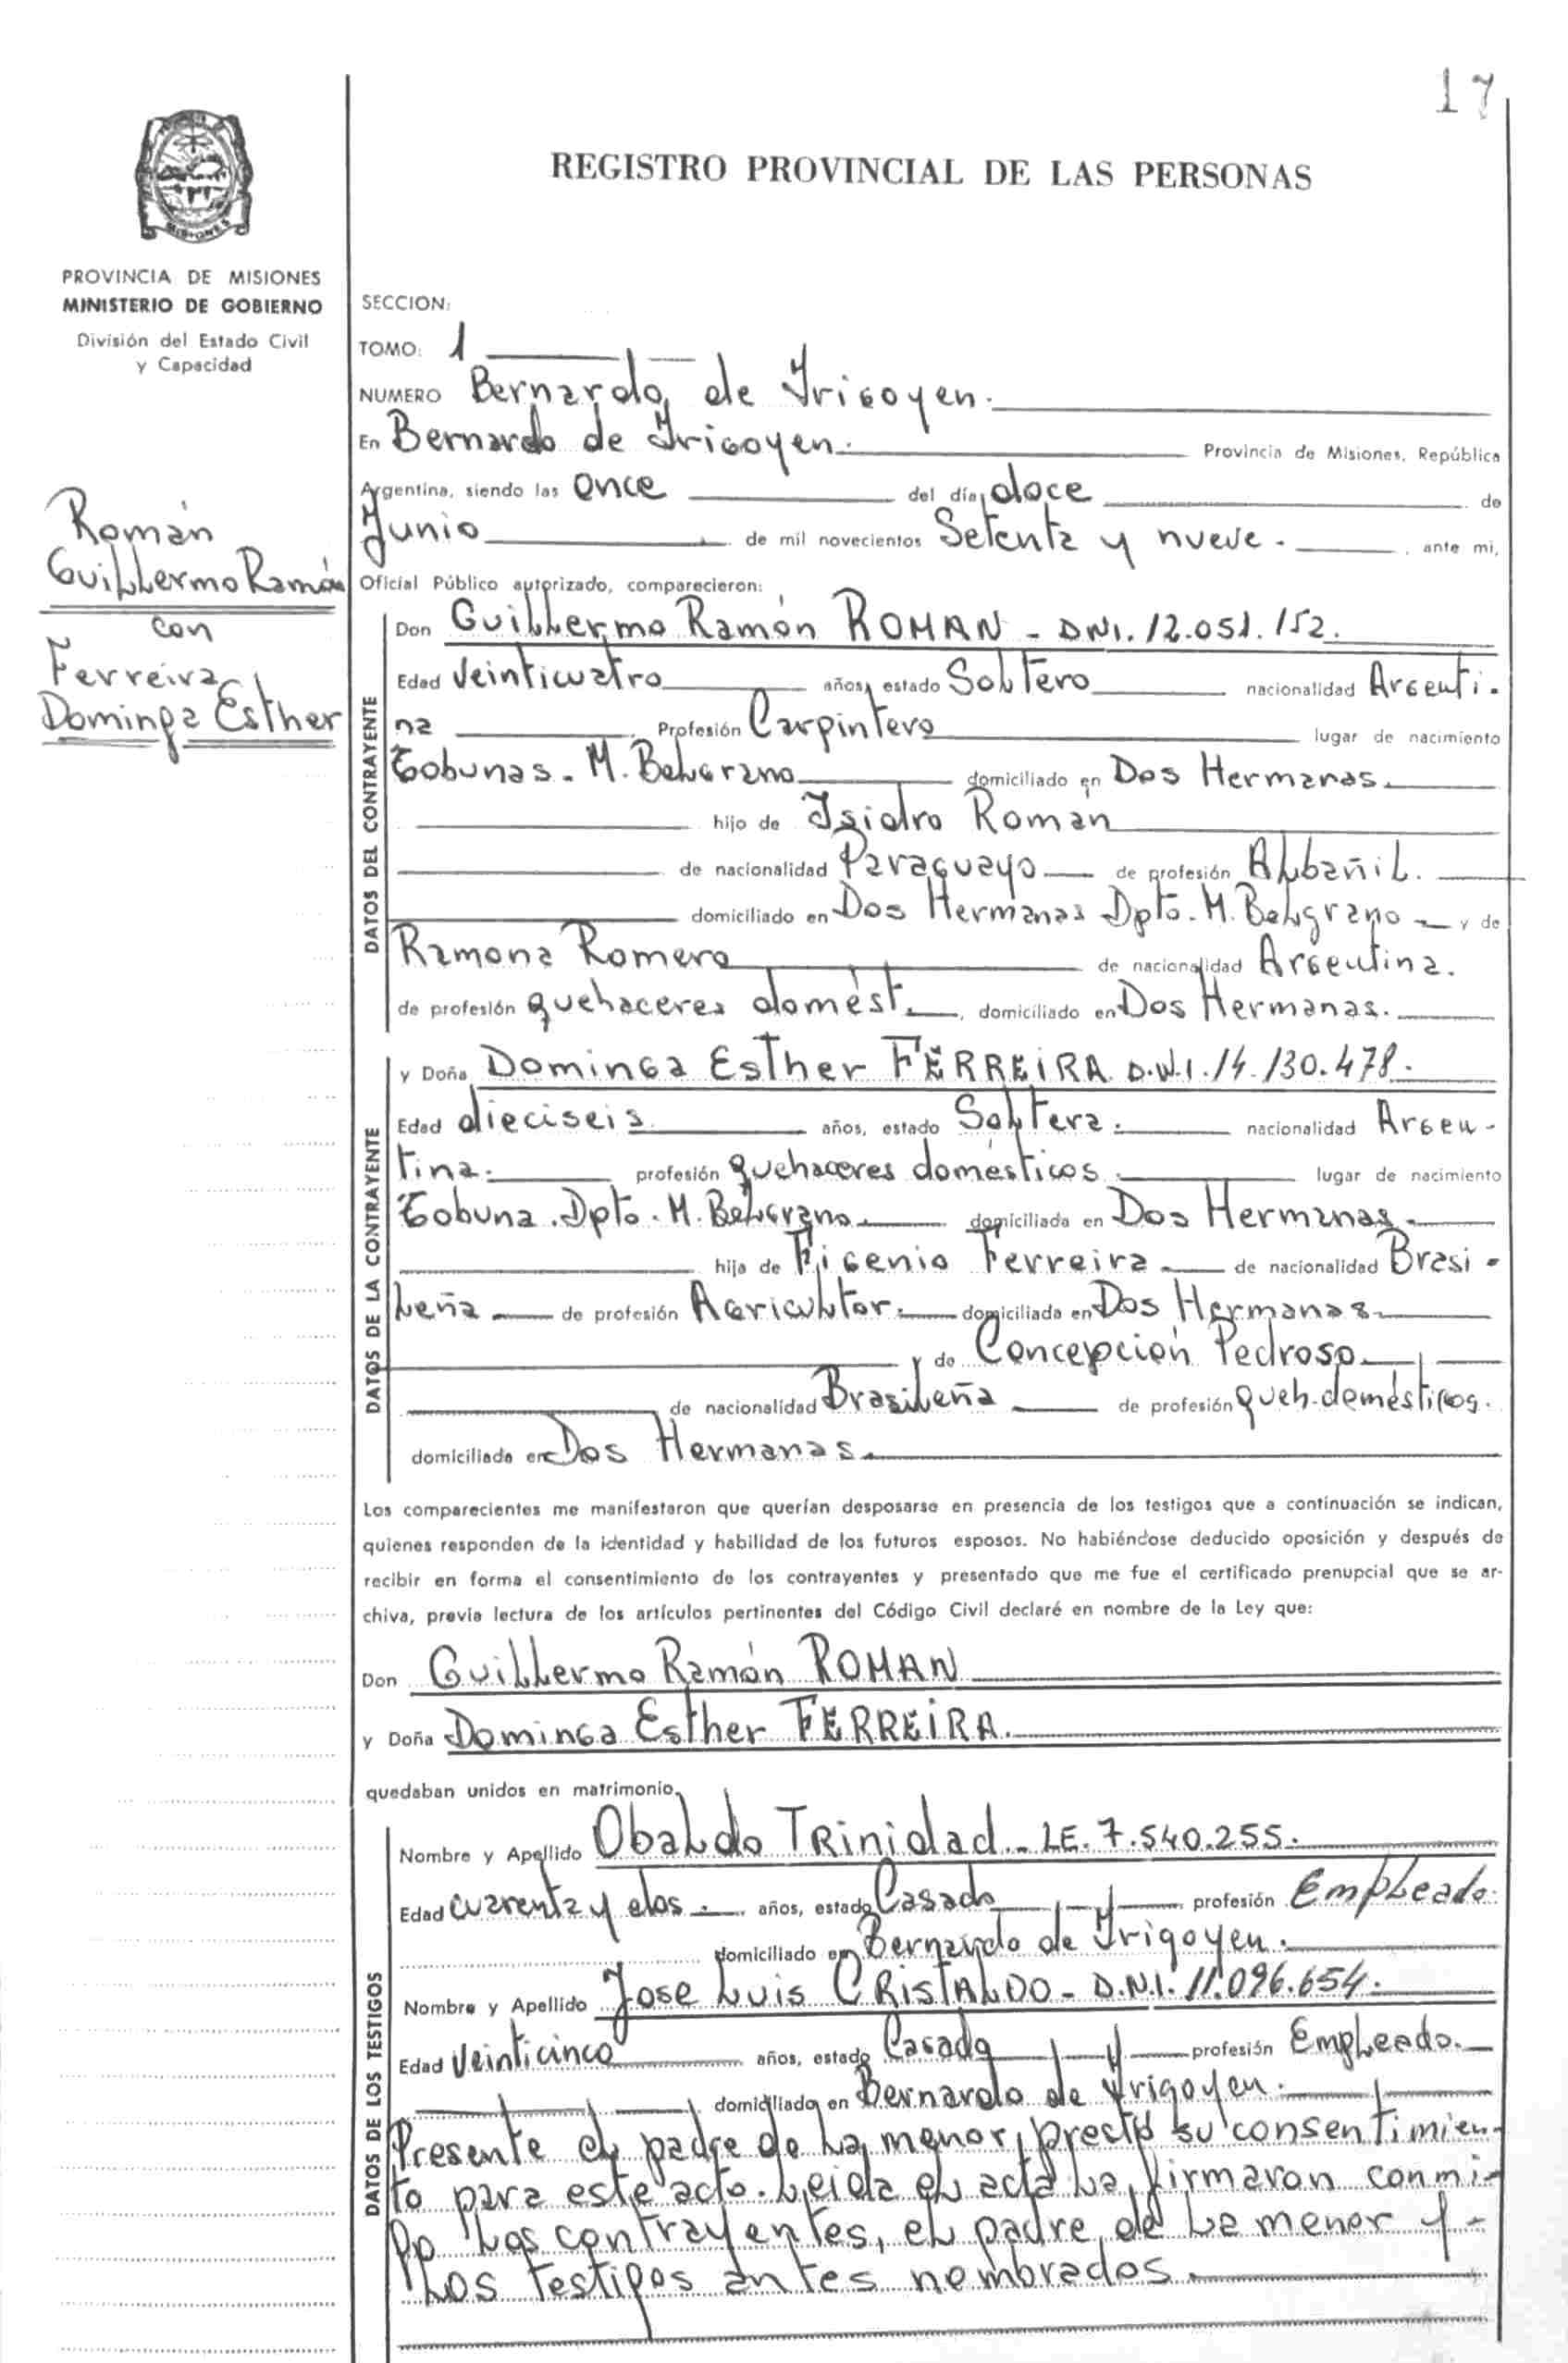 17
REGISTRO PROVINCIAL DE LAS PERSONAS
MISIONES
PROVINCIA DE MISIONES
MINISTERIO DE GOBIERNO
División del Estado Civil
y Capacidad
Román
Guillermo Ramón
con
Ferreira
Dominga Esther
SECCION:
TOMO: 1
NUMERO Bernardo de Irigoyen.
En Bernardo de Irigoyen. Provincia de Misiones, República
Argentina, siendo las once del día doce de
Junio de mil novecientos Setenta y nueve. , ante mi,
Oficial Público autorizado, comparecieron:
DATOS DEL CONTRAYENTE
Don Guillermo Ramón ROMAN - DNI. 12.051.152.
Edad Veinticuatro años, estado Soltero nacionalidad Argenti-
na Profesión Carpintero lugar de nacimiento
Tobunas. M. Belgrano domiciliado en Dos Hermanas.
hijo de Isidro Román
de nacionalidad Paraguayo de profesión Albañil.
domiciliado en Dos Hermanas Dpto. M. Belgrano y de
Ramona Romero de nacionalidad Argentina.
de profesión quehaceres domést. , domiciliado en Dos Hermanas.
DATOS DE LA CONTRAYENTE
y Doña Dominga Esther FERREIRA D.N.I. 14.130.478.
Edad dieciseis años, estado Soltera. nacionalidad Argen-
tina. profesión quehaceres domésticos. lugar de nacimiento
Tobuna. Dpto. M. Belgrano domiciliada en Dos Hermanas.
hija de Figenio Ferreira de nacionalidad Brasi-
leña de profesión Agricultor. domiciliada en Dos Hermanas
y de Concepción Pedroso
de nacionalidad Brasileña de profesión queh. domésticos.
domiciliada en Dos Hermanas.
Los comparecientes me manifestaron que querían desposarse en presencia de los testigos que a continuación se indican,
quienes responden de la identidad y habilidad de los futuros esposos. No habiéndose deducido oposición y después de
recibir en forma el consentimiento de los contrayentes y presentado que me fue el certificado prenupcial que se ar-
chiva, previa lectura de los artículos pertinentes del Código Civil declaré en nombre de la Ley que:
Don Guillermo Ramón ROMAN
y Doña Dominga Esther FERREIRA.
quedaban unidos en matrimonio.
DATOS DE LOS TESTIGOS
Nombre y Apellido Obaldo TRinidad - LE. 7.540.255.
Edad cuarenta y dos. años, estado Casado profesión Empleado.
domiciliado en Bernardo de Irigoyen.
Nombre y Apellido Jose Luis CRISTALDO - D.N.I. 11.096.654.
Edad Veinticinco años, estado Casado profesión Empleado.
domiciliado en Bernardo de Yrigoyen.
Presente el padre de la menor, prestó su consentimien-
to para este acto. Leida el acta la firmaron conmi-
go los contrayentes, el padre de la menor y -
los testigos antes nombrados.